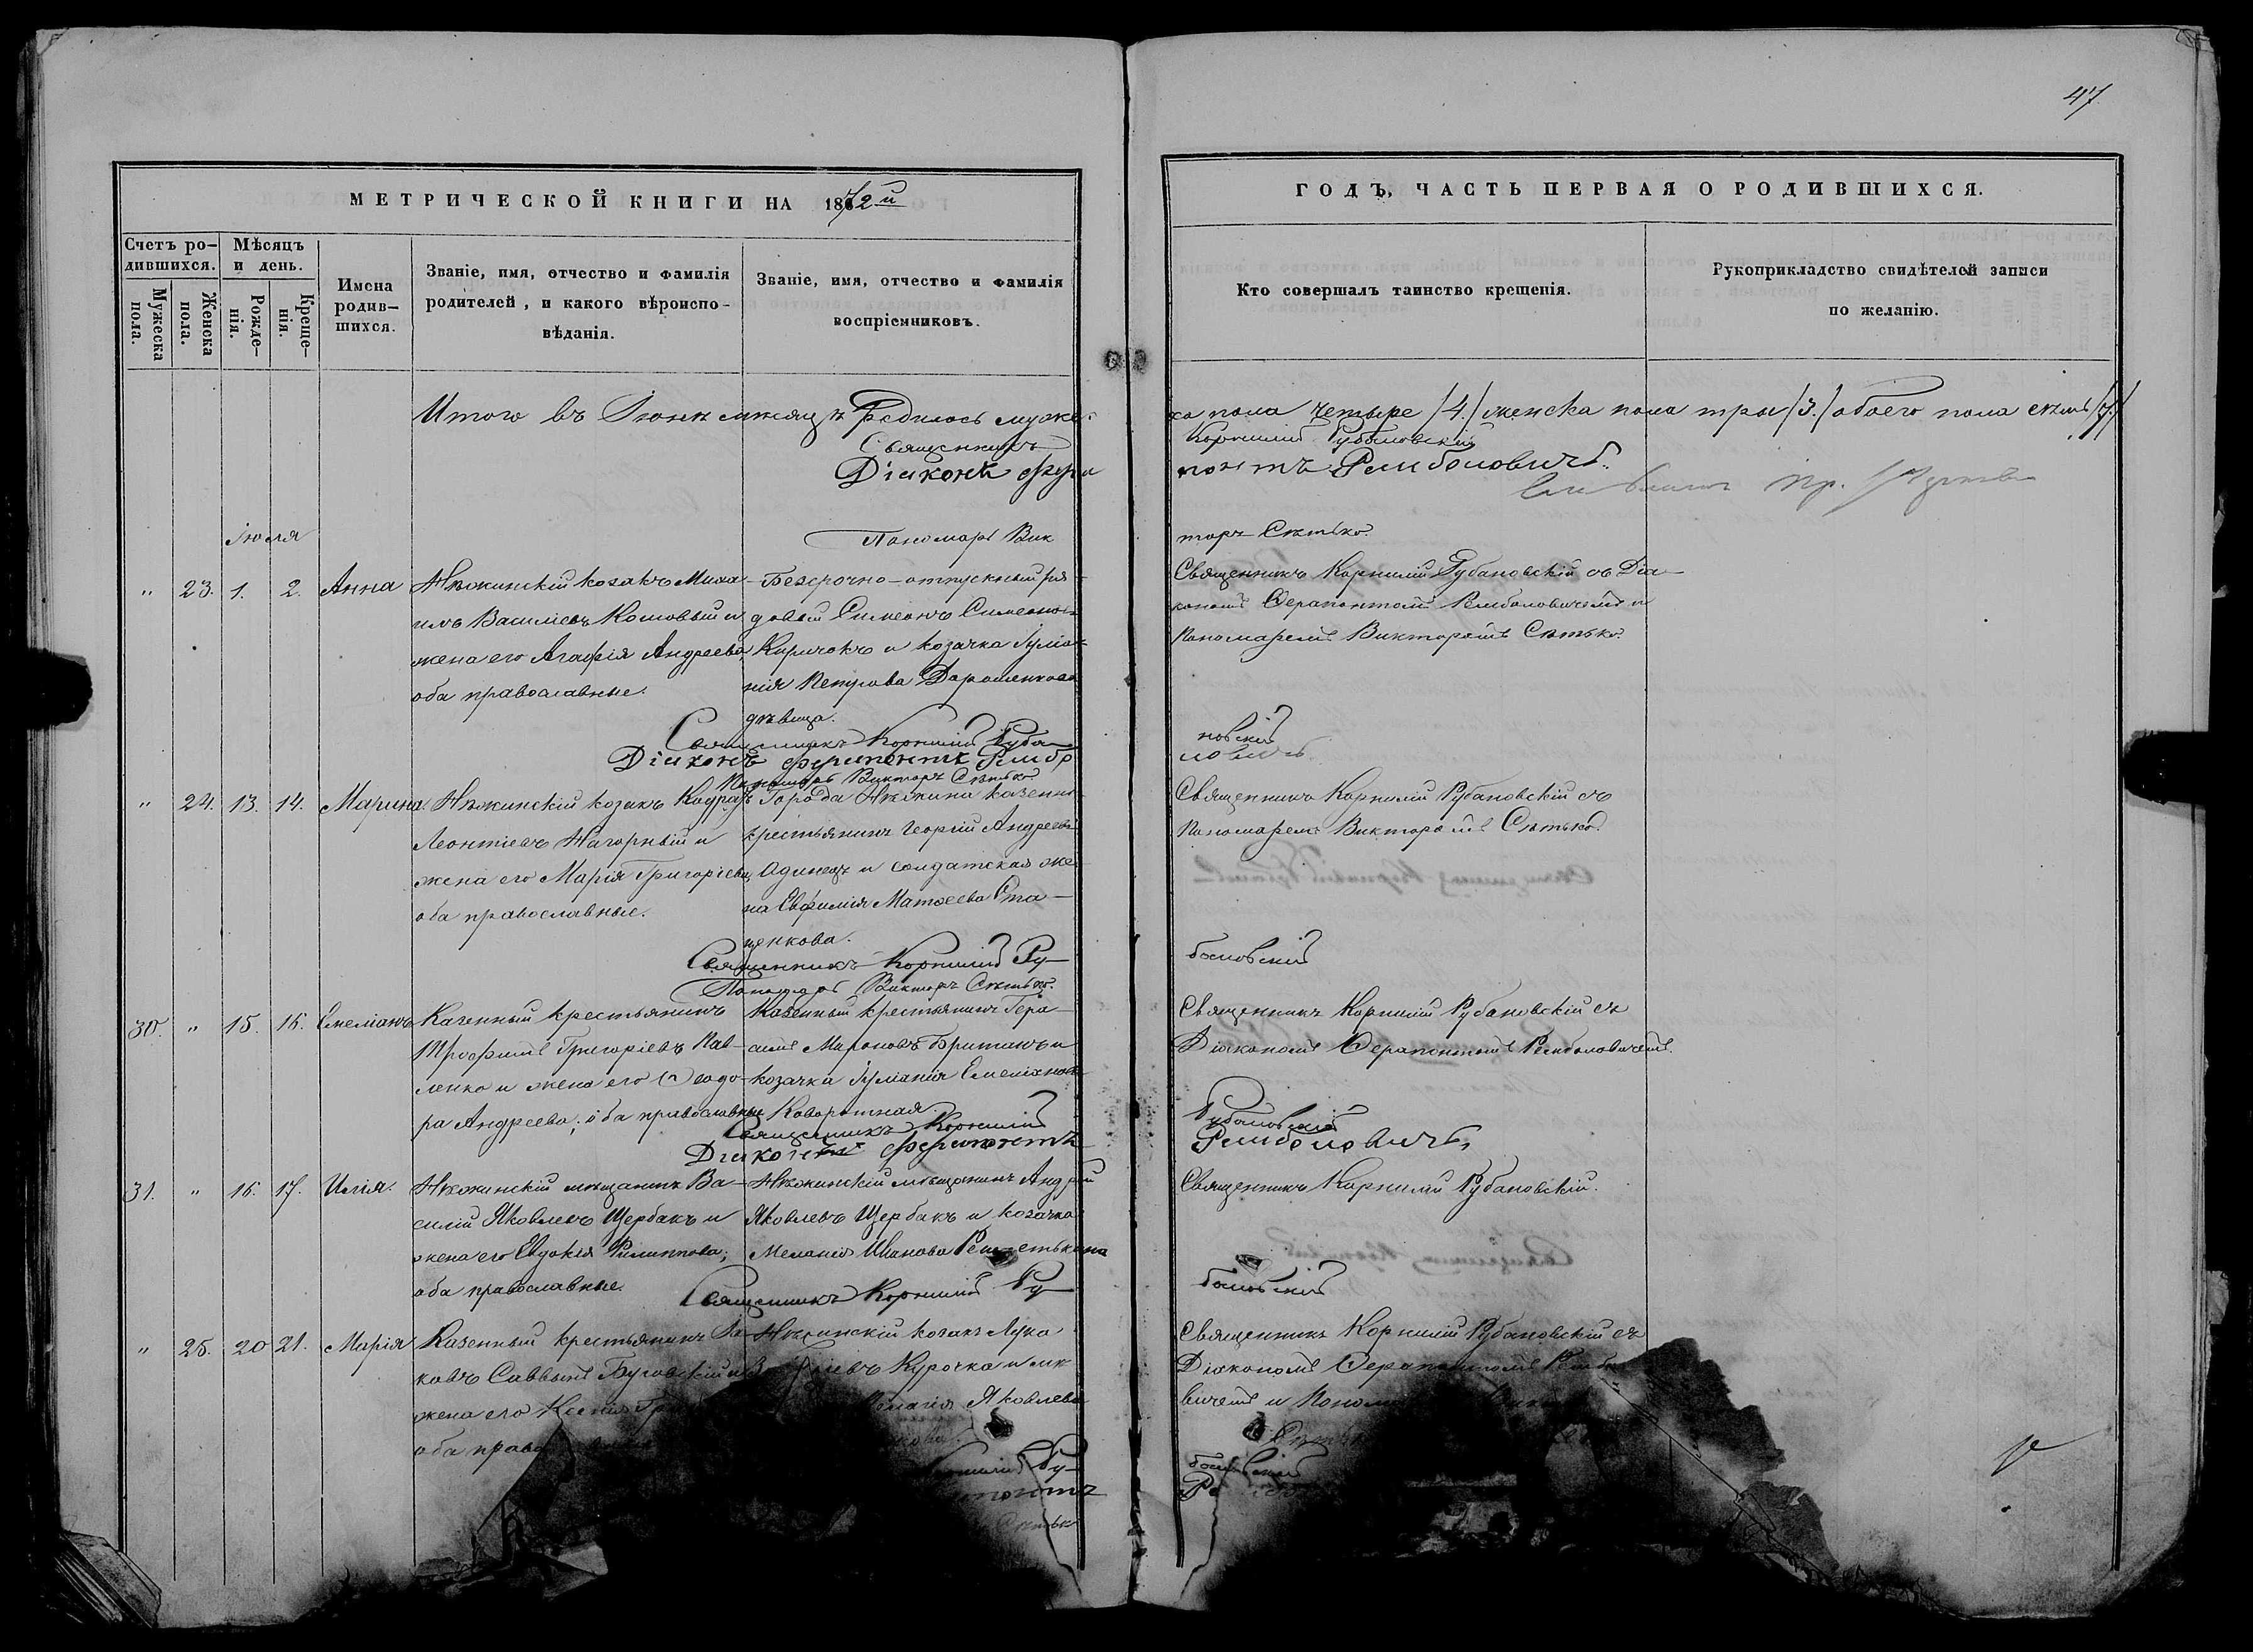 47
МЕТРИЧЕСКОЙ КНИГИ НА 1872й
ГОДЪ, ЧАСТЬ ПЕРВАЯ О РОДИВШИХСЯ.
Счетъ ро-
дившихся.
Мужеска
пола.
Женска
пола.
Мѣсяцъ
и день.
Рожде-
нія.
Креще-
нія.
Имена
родив-
шихся.
Званіе, имя, отчество и фамилія
родителей, и какого вѣроиспо-
вѣданія.
Званіе, имя, отчество и фамилія
воспріемниковъ.
Кто совершалъ таинство крещенія.
Рукоприкладство свидѣтелей записи
по желанію.
Итого въ Іюнѣ мѣсяцѣ родилось муже-
ска пола четыре /4./ женска пола три /3./ обоего пола семь /7./
Священникъ Корнилій Рубановскій
Діаконъ Ферапонтъ Ремболовичъ.
Пономарь Викторъ Сѣтько.
Іюля
" 23. 1. 2. Анна
Нѣжинскій козакъ Миха-
илъ Василіевъ Кошовый и
жена его Агафія Андреева,
оба православные.
Безсрочно-отпускный ря-
довый Симеонъ Симеоновъ
Киричокъ и козачка Іуліа-
нія Петрова Дорошенкова
дѣвица.
Священникъ Корнилій Рубановскій съ Діа-
кономъ Ферапонтомъ Ремболовичемъ и
Пономаремъ Викторомъ Сѣтько.
Священникъ Корнилій Рубановскій
Діаконъ Ферапонтъ Ремболовичъ
Пономарь Викторъ Сѣтько
" 24. 13. 14. Марина
Нѣжинскій козакъ Кодратъ
Леонтіевъ Нагорный и
жена его Марія Григоріева,
оба православные.
Города Нѣжина казенны
крестьянинъ Георгій Андреевъ
Одинецъ и солдатская же-
на Евфимія Матѳеева Ста-
ценкова.
Священникъ Корнилій Рубановскій съ
Пономаремъ Викторомъ Сѣтько.
Священникъ Корнилій Рубановскій
Пономарь Викторъ Сѣтько.
30. " 15. 16. Емеліанъ
Казенный крестьянинъ
Трофимъ Григоріевъ Пав-
ленко и жена его Ѳеодо-
ра Андреева; оба православные
Казенный крестьянинъ Гера-
симъ Мироновъ Британъ и
козачка Іуліанія Емеліанова
Коворотная.
Священникъ Корнилій Рубановскій съ
Діакономъ Ферапонтомъ Ремболовичемъ.
Священникъ Корнилій Рубановскій
Діаконъ Ферапонтъ Ремболовичъ
31. " 16. 17. Илія.
Нѣжинскій мѣщанинъ Ва-
силій Яковлевъ Щербакъ и
жена его Евдокія Филиппова;
оба православные.
Нѣжинскій мѣщанинъ Андрей
Яковлевъ Щербакъ и козачка
Меланія Иванова
Священникъ Корнилій Рубановскій.
Священникъ Корнилій Рубановскій
" 25. 20 21. Марія
Казенный крестьянинъ Іа-
ковъ Саввинъ Буговскій и
жена его Ксенія
оба право
Нѣжинскій козакъ Лука
Курочка и
Яковлева
Священникъ Корнилій Рубановскій съ
Діакономъ Ферапонтомъ Рембо
вичемъ и Поном